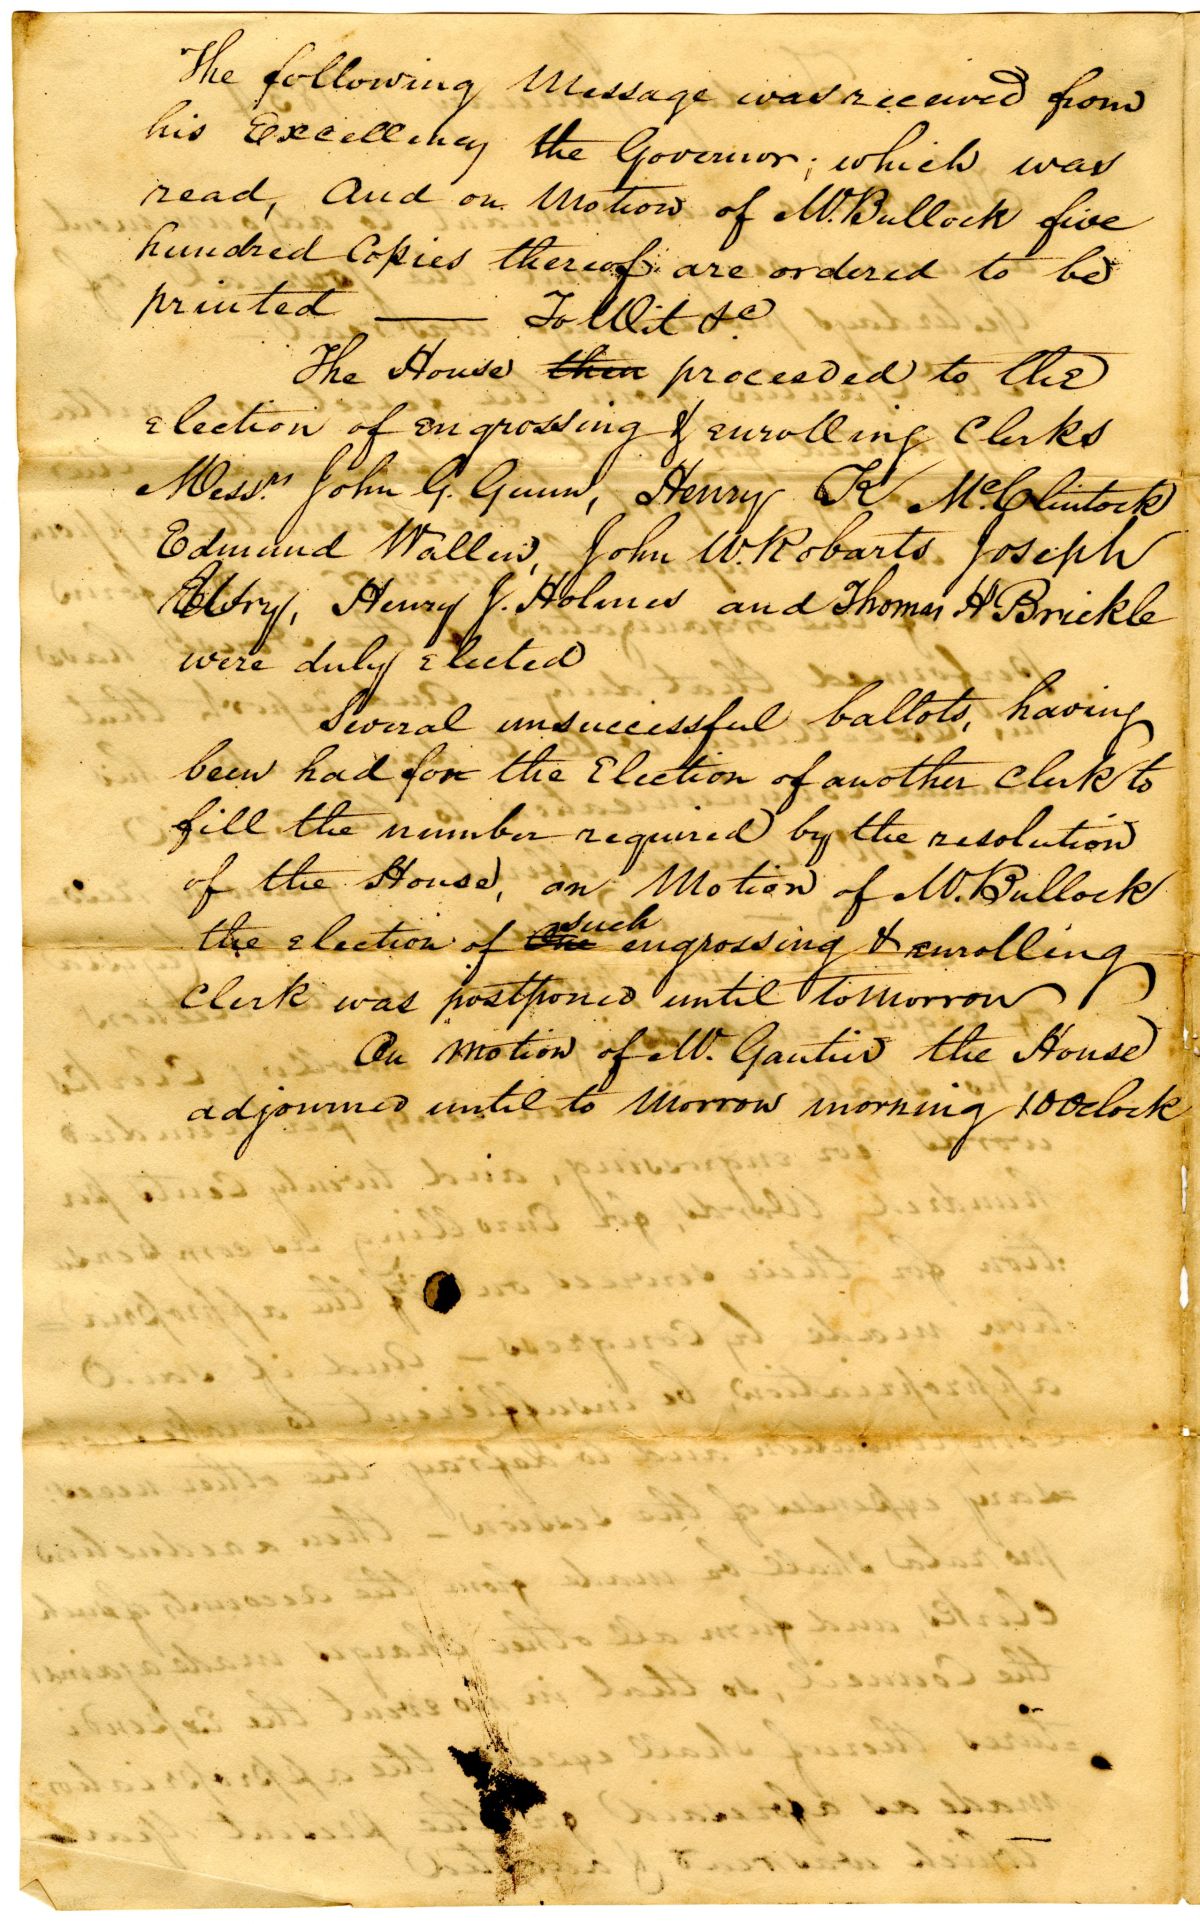 The following Message was received from
his Excellency the Governor; which was
read, and on Motion of Mr. Bullock five
hundred Copies thereof are ordered to be
printed —— To Wit &c
The House then proceeded to the
election of engrossing & enrolling Clerks
Messrs John G. Gunn, Henry K McClintock
Edmund Wallin, John W. Robarts Joseph
Henry J. Holmes and Thomas H Brickle
were duly elected
Several unsuccessful ballots, having
been had for the Election of another Clerk to
fill the number required by the resolution
of the House, on Motion of Mr. Bullock
the election of one such engrossing & enrolling
Clerk was postponed until tomorrow
On motion of Mr. Gautier the House
adjourned until to Morrow morning 10 Oclock